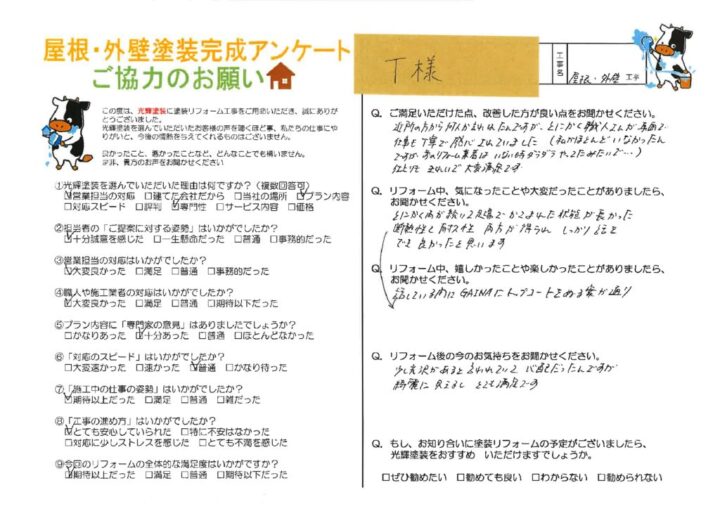 屋根・外壁塗装完成アンケート
ご協力のお願い
T様
工事名
屋根・外壁 工事
この度は、光輝塗装に塗装リフォーム工事をご用命いただき、誠にありが
とうございました。
光輝塗装を選んでいただいたお客様の声を聴くほど事、私たちの仕事にや
りがいと、今後の情熱を与えてくれるものはございません。
良かったこと、悪かったことなど、どんなことでも構いません。
是非、貴方のお声をお聞かせください
①光輝塗装を選んでいただいた理由は何ですか?(複数回答可)
☑営業担当の対応 □建てた会社だから □当社の場所 ☑プラン内容
□対応スピード □評判 ☑専門性 □サービス内容 □価格
②担当者の「ご提案に対する姿勢」はいかがでしたか?
☑十分誠意を感じた □一生懸命だった □普通 □事務的だった
③営業担当の対応はいかがでしたか?
☑大変良かった □満足 □普通 □事務的だった
④職人や施工業者の対応はいかがでしたか?
☑大変良かった □満足 □普通 □期待以下だった
⑤プラン内容に「専門家の意見」はありましたでしょうか?
□かなりあった ☑十分あった □普通 □ほとんどなかった
⑥「対応のスピード」はいかがでしたか?
□大変速かった □速かった ☑普通 □かなり待った
⑦「施工中の仕事の姿勢」はいかがでしたか?
☑期待以上だった □満足 □普通 □雑だった
⑧「工事の進め方」はいかがでしたか?
☑とても安心していられた □特に不安はなかった
□対応に少しストレスを感じた □とても不満を感じた
⑨今回のリフォームの全体的な満足度はいかがですか?
☑期待以上だった □満足 □普通 □期待以下だった
Q. ご満足いただけた点、改善した方が良い点をお聞かせください。
近所の方から
とにかく職人さんが真面目で
仕事を丁寧で
(私がほどんどいなかったん
ですが
仕上りも きれいで 大変満足です
Q. リフォーム中、気になったことや大変だったことがありましたら、
お聞かせください。
とにかく雨が
状態が長かった
断熱性と
しっかり
良かったと思います
Q. リフォーム中、嬉しかったことや楽しかったことがありましたら、
お聞かせください。
GAINAにトップコートを
Q. リフォーム後の今のお気持ちをお聞かせください。
少し光沢があると言われていて 心配だったんですが
綺麗に見えるし とても満足です
Q. もし、お知り合いに塗装リフォームの予定がございましたら、
光輝塗装をおすすめ いただけますでしょうか。
□ぜひ勧めたい □勧めても良い □わからない □勧められない